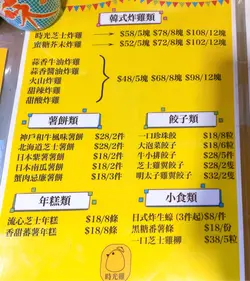 韓式炸雞類
時光芝士炸雞 $58/5塊 $78/8塊 $108/12塊
蜜糖芥末炸雞 $52/5塊 $72/8塊 $102/12塊
蒜香牛油炸雞
蒜香醬油炸雞
火山炸雞
甜辣炸雞
甜酸炸雞
$48/5塊 $68/8塊 $98/12塊
薯餅類
神戶和牛風味薯餅 $28/2件
北海道芝士薯餅 $18/2件
日本紫薯薯餅 $18/2件
日本南瓜薯餅 $18/2件
蟹肉忌廉薯餅 $18/3件
餃子類
一口珍珠餃 $18/8粒
大泡菜餃子 $18/6粒
牛小排餃子 $28/5件
芝士雞翼餃子 $28/2隻
明太子雞翼餃子 $28/2隻
年糕類
流心芝士年糕 $18/8條
香甜蕃薯年糕 $18/8條
小食類
日式炸生蠔 (3件起) $8/件
黑糖番薯條 $18/份
一口芝士雞柳 $38/5粒
時光雞